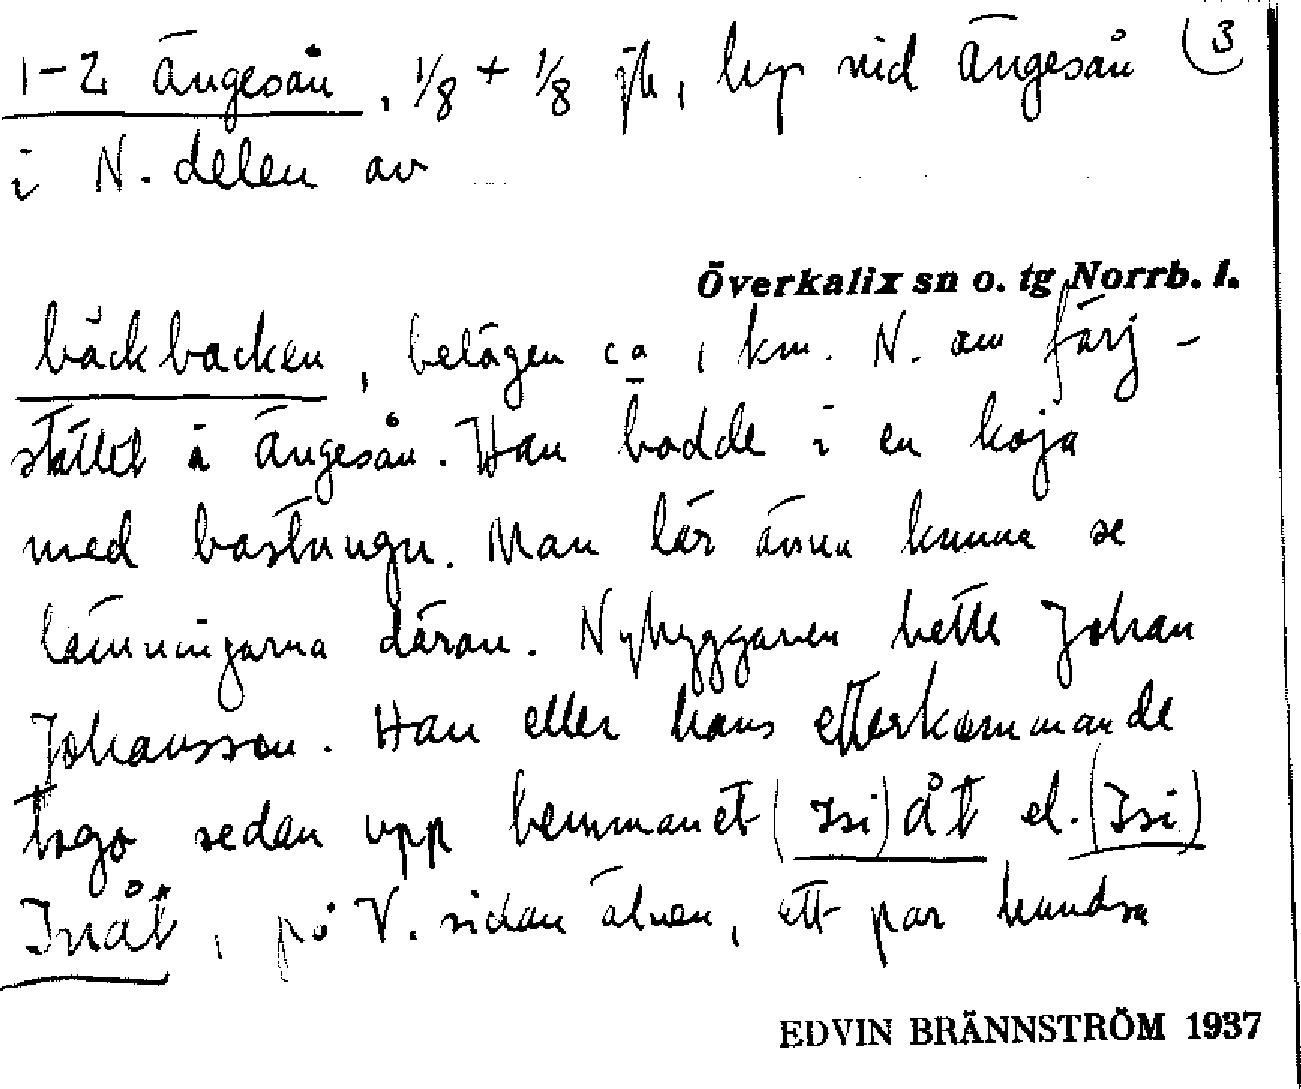 1-2 Ängesån, 1/8 + 1/8 jb, byr vid Ängesån (3
i N. delen av
Överkalix sn o. tg Norrb. l.
bäckbacken, belägen ca 1 km. N. om färj-
stället å Ängesån. Han bodde i en koja
med bastungn. Man lär ännu kunna se
lämningarna därav. Nybyggaren hette Johan
Johansson. Han eller hans efterkommande
togo sedan upp hemmanet (Isi)åt el. (Isi)
Inåt, på V. sidan älven, ett par hundra
EDVIN BRÄNNSTRÖM 1937